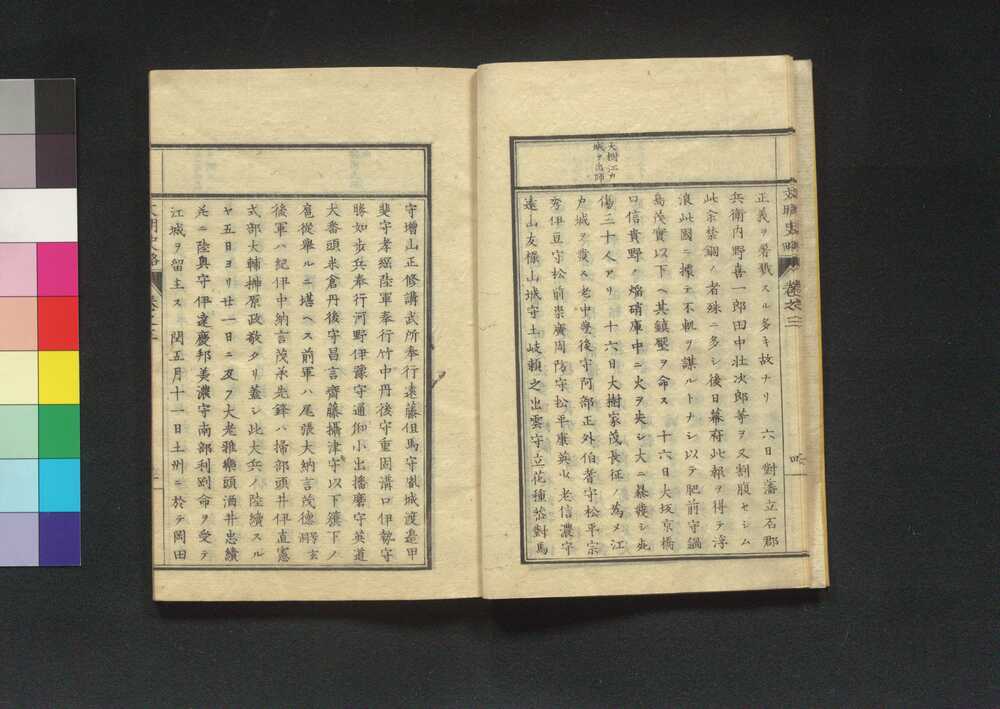 大樹江カ
城ヲ出師
正義ヲ唱ヘ誤スル多キ故ナリ　六日對藩立石郡
兵衛内野喜一郎田中壮次郎等ヲ又割腹セシム
此余禁錮ノ者殊ニ多シ後日幕府此報ヲ得テ浮
浪此國ニ據テ不軌ヲ謀ルトナシ以テ肥前守鍋
島茂實以下ヘ其鎮壓ヲ命ス　十六日大坂京橋
口信貴野ノ焔硝庫中ニ火ヲ失シ大ニ暴發シ死
傷三十人アリ　十六日大樹家茂長征ノ為メ江
カ城ヲ發ス老中豊後守阿部正外伯耆守松平宗
秀伊豆守松前崇廣周防守松平康英少老信濃守
遠山友祿山城守土岐頼之出雲守立花種恭對馬
守増山正修講武所奉行遠藤但馬守胤城渡邉甲
斐守孝綱陸軍奉行竹中丹後守重固溝口伊勢守
勝如歩兵奉行河野伊豫守通和小出播磨守英道
大番頭米倉丹後守昌言齋藤攝津守以下籏下ノ
麾從舉ルニ堪ヘス前軍ハ尾張大納言茂德稱玄同
後軍ハ紀伊中納言茂承先鋒ハ掃部頭井伊直憲
式部大輔榊原政敬タリ蓋シ此大兵ノ陸續スル
ヤ五日ヨリ廿一日ニ及フ大老雅樂頭酒井忠績
并ニ陸奥守伊達慶邦美濃守南部利剛命ヲ受テ
江城ヲ留主ス　閏五月十一日土州ニ於テ岡田